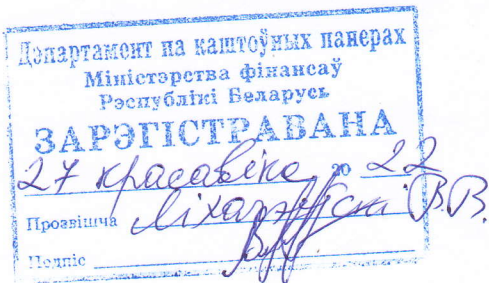 Дэпартамент па каштоўных паперах
Міністэрства фінансаў
Рэспублікі Беларусь
ЗАРЭГІСТРАВАНА
27 красавіка 20 22
Прозвішча Ліхарэўскі В.В.
Подпіс